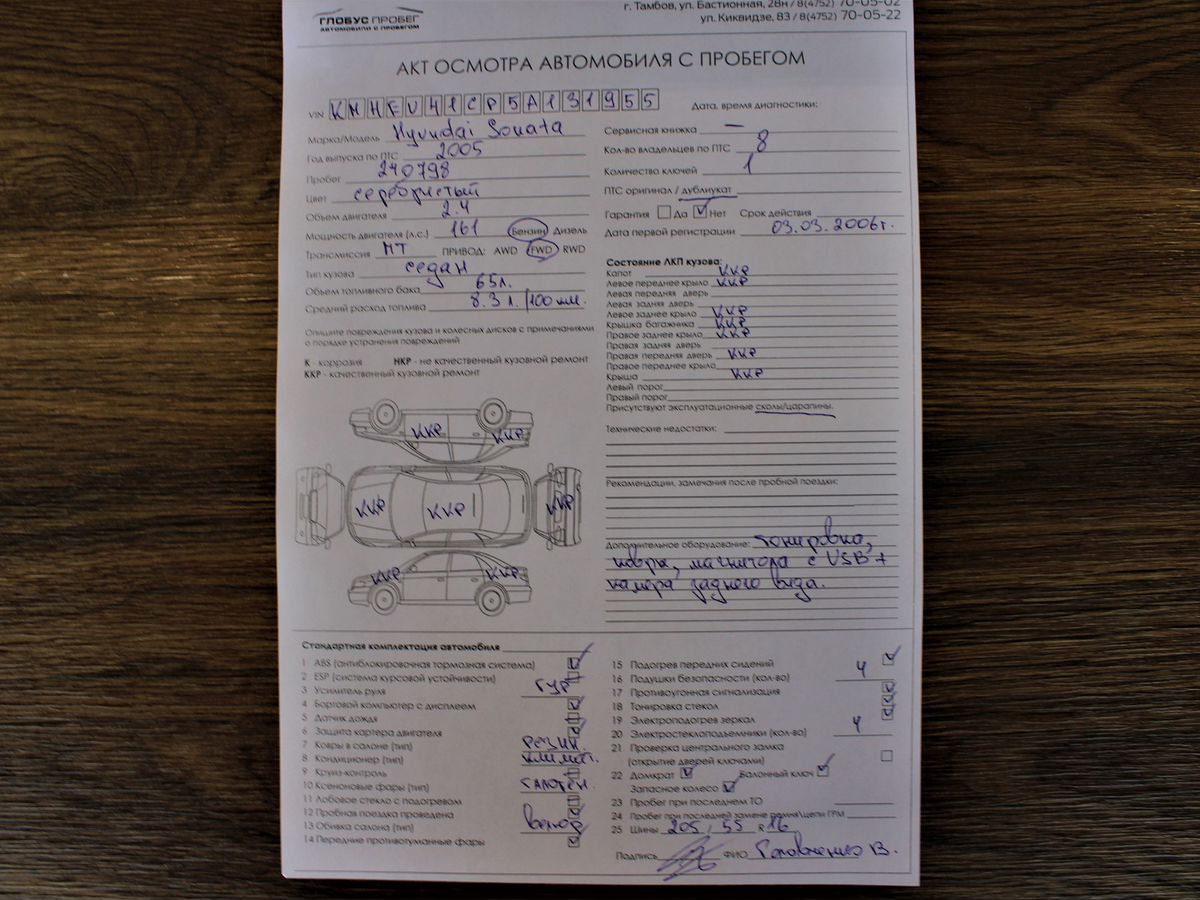 ГЛОБУС ПРОБЕГ
АВТОМОБИЛИ С ПРОБЕГОМ
г. Тамбов, ул. Бастионная, 28н / 8(4752) 70-05-02
ул. Киквидзе, 83 / 8(4752) 70-05-22
АКТ ОСМОТРА АВТОМОБИЛЯ С ПРОБЕГОМ
VIN KMHEV41CP5A131955
Дата, время диагностики:
Марка/Модель Hyundai Sonata
Год выпуска по ПТС 2005
Пробег 240798
Цвет серебристый
Объем двигателя 2.4
Мощность двигателя (л.с.) 161 Бензин Дизель
Трансмиссия МТ ПРИВОД: AWD FWD RWD
Тип кузова седан
Объем топливного бака 65л.
Средний расход топлива 8.3 л. /100 км.
Опишите повреждения кузова и колесных дисков с примечаниями
о порядке устранения повреждений
К - коррозия НКР - не качественный кузовной ремонт
ККР - качественный кузовной ремонт
ККР ККР
ККР ККР ККР
ККР ККР
Сервисная книжка —
Кол-во владельцев по ПТС 8
Количество ключей 1
ПТС оригинал / дубликат
Гарантия Да Нет Срок действия
Дата первой регистрации 03.03.2006г.
Состояние ЛКП кузова:
Капот ККР
Левое переднее крыло ККР
Левая передняя дверь
Левая задняя дверь
Левое заднее крыло ККР
Крышка багажника ККР
Правое заднее крыло ККР
Правая задняя дверь
Правая передняя дверь ККР
Правое переднее крыло
Крыша ККР
Левый порог
Правый порог
Присутствуют эксплуатационные сколы/царапины.
Технические недостатки:
Рекомендации, замечания после пробной поездки:
Дополнительное оборудование: тонировка,
ковры, магнитола с USB +
камера заднего вида.
Стандартная комплектация автомобиля
1 ABS (антиблокировочная тормозная система)
2 ESP (система курсовой устойчивости)
3 Усилитель руля ГУР
4 Бортовой компьютер с дисплеем
5 Датчик дождя
6 Защита картера двигателя
7 Ковры в салоне (тип) резин.
8 Кондиционер (тип) климат.
9 Круиз-контроль
10 Ксеноновые фары (тип) галоген.
11 Лобовое стекло с подогревом
12 Пробная поездка проведена
13 Обивка салона (тип) велюр
14 Передние противотуманные фары
15 Подогрев передних сидений
16 Подушки безопасности (кол-во) 4
17 Противоугонная сигнализация
18 Тонировка стекол
19 Электроподогрев зеркал
20 Электростеклоподъемники (кол-во) 4
21 Проверка центрального замка
(открытие дверей ключами)
22 Домкрат Балонный ключ
Запасное колесо
23 Пробег при последнем ТО
24 Пробег при последней замене ремня\цепи ГРМ
25 Шины 205 / 55 R 16
Подпись ФИО Головченко В.